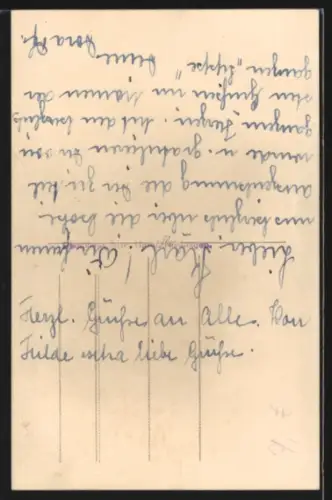 Lieber Karl! Wir freuen
uns herzlich über die hohe
Auszeichnung die Dir zuteil
wurde u. gratulieren Dir von
ganzem Herzen. Mit den herzlich
sten Grüßen im Namen der
ganzen "Sippe"
Deine
Dora
Herzl. Grüße an Alle. Von
Hilde extra liebe Grüße.